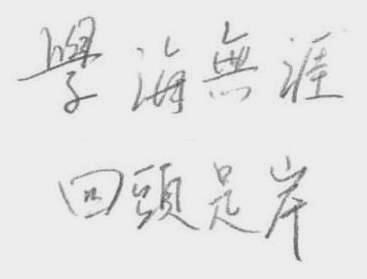 學海無涯
回頭是岸